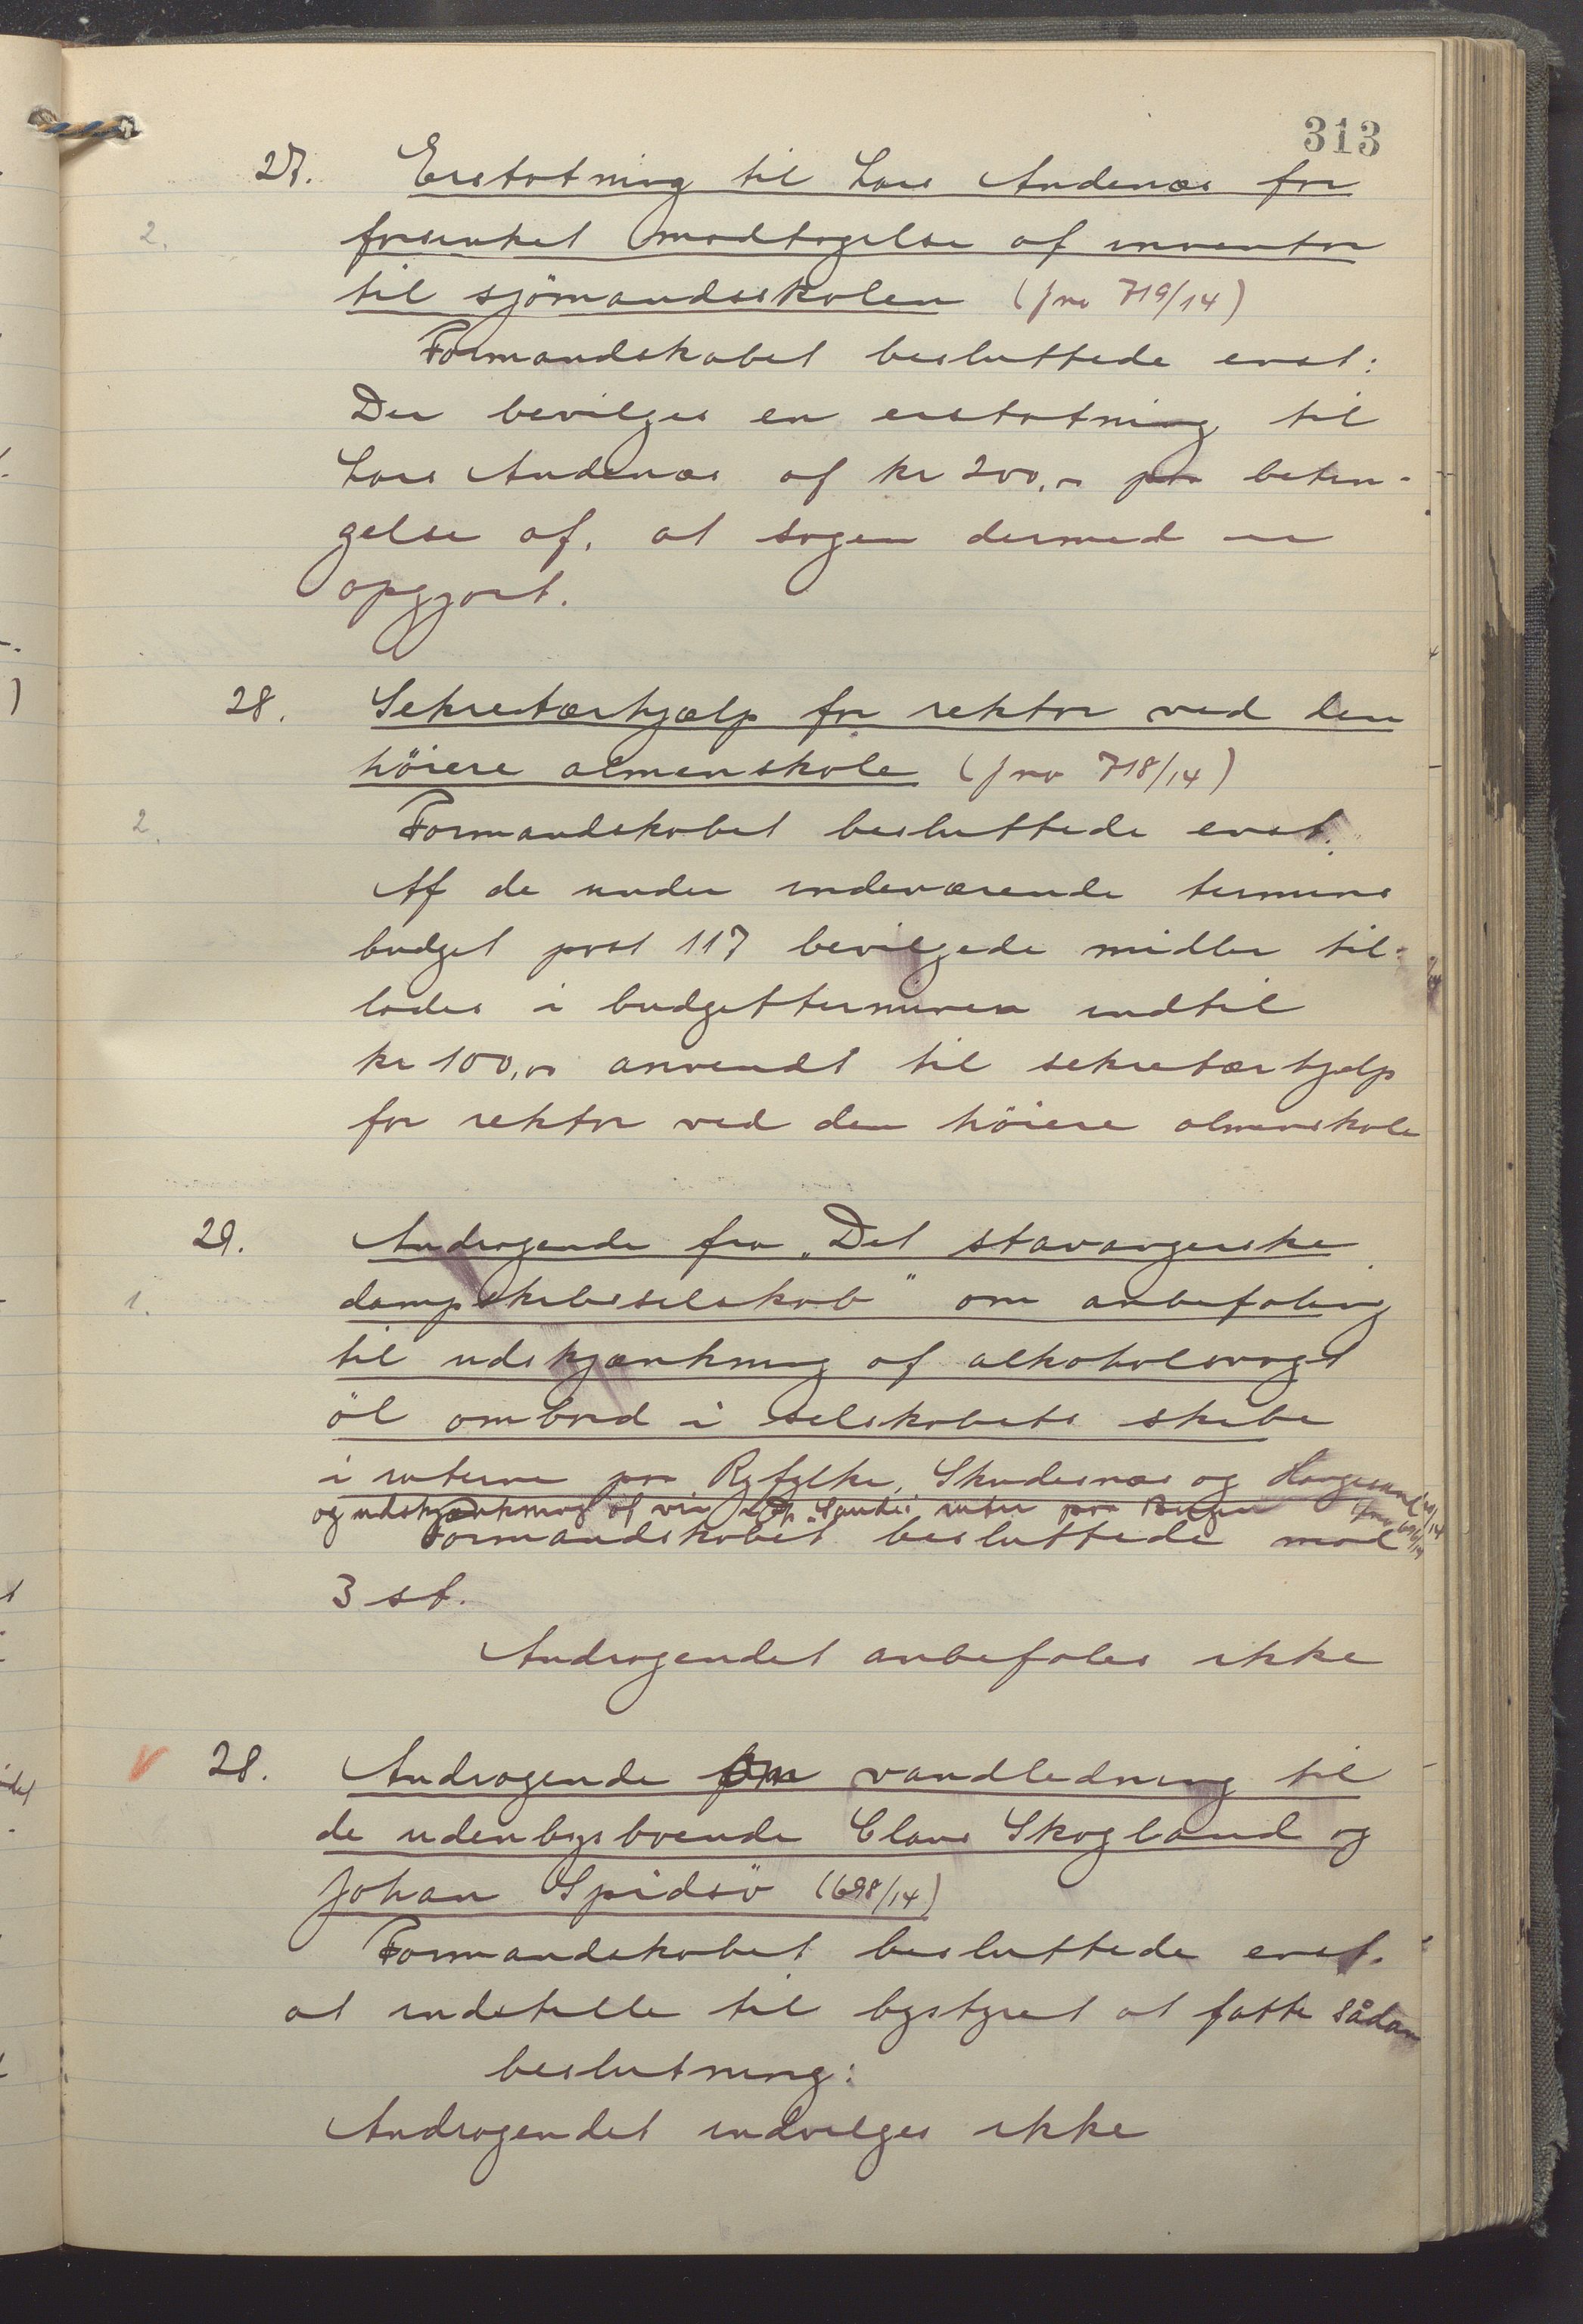 313
27. Erstatning til Lars Andenæs for
2. forsinket modtagelse af inventar
til sjömandsskolen (J no 719/14)
Formandskabet besluttede enst:
Der bevilges en erstatning til
Lars Andenæs af kr 200,00 paa betin-
gelse af, at sagen dermed er
opgjort.
28. Sekretærhjælp for rektor ved den
höiere almenskole (J no 718/14)
2. Formandskabet besluttede enst:
Af de under indeværende termins
budget post 117 bevilgede midler til-
lades i budgetterminen indtil
kr 100,00 anvendt til sekretærhjelp
for rektor ved den höiere almenskole
29. Andragende fra "Det stavangerske
1. dampskibsselskab" om anbefaling
til udskjænkning af alkoholsvagt
öl ombord i selskabets skibe
i ruterne paa Ryfylke, Skudesnæs og Haugesund
og udskjænkning af vin i Sandes ruter paa Bergen
Formandskabet besluttede mod
3 st.
Andragendet anbefales ikke
V 28. Andragende om vandledning til
de udenbysboende Claus Skogland og
Johan Spidsö (698/14)
Formandskabet besluttede enst.
at indstille til bystyret at fatte sådan
beslutning:
Andragendet indvilges ikke